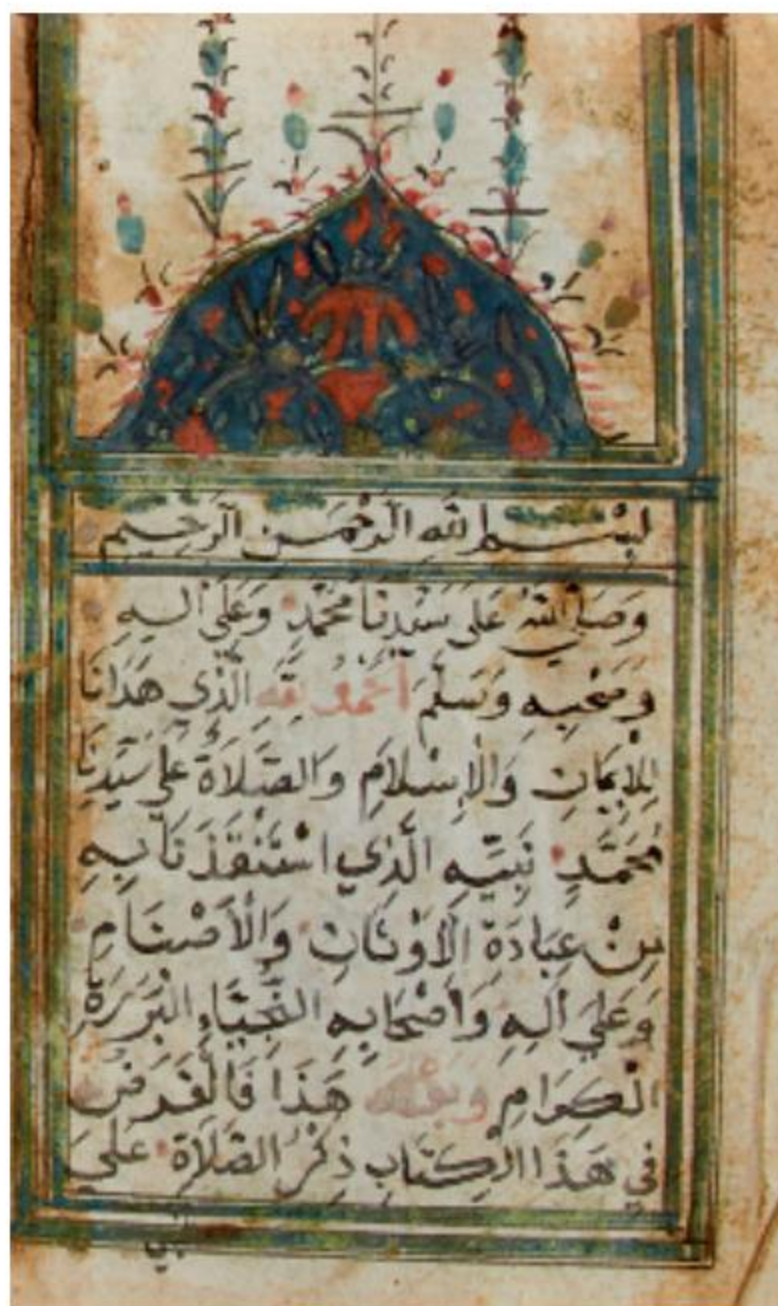 بِسْمِ اللهِ الرَّحْمَنِ الرَّحِيمِ
وَصَلَّى اللهُ عَلَى سَيِّدِنَا مُحَمَّدٍ وَعَلَى أَلِهِ
وَصَحْبِهِ وَسَلَّمَ أَلْحَمْدُ لِلَّهِ الَّذِي هَدَانَا
لِلْإِيمَانِ وَالْإِسْلَامِ وَالصَّلَاةُ عَلَى سَيِّدِنَا
مُحَمَّدٍ نَبِيِّهِ الَّذِي اسْتَنْقَذَنَا بِهِ
مِنْ عِبَادَةِ الْأَوْثَانِ وَالْأَصْنَامِ
وَعَلَى أَلِهِ وَأَصْحَابِهِ النُّجَبَاءِ الْبَرَرَةِ
الْكِرَامِ وَبَعْدُ هَذَا فَالْغَرَضُ
فِي هَذَا الْكِتَابِ ذِكْرُ الصَّلَاةِ عَلَى